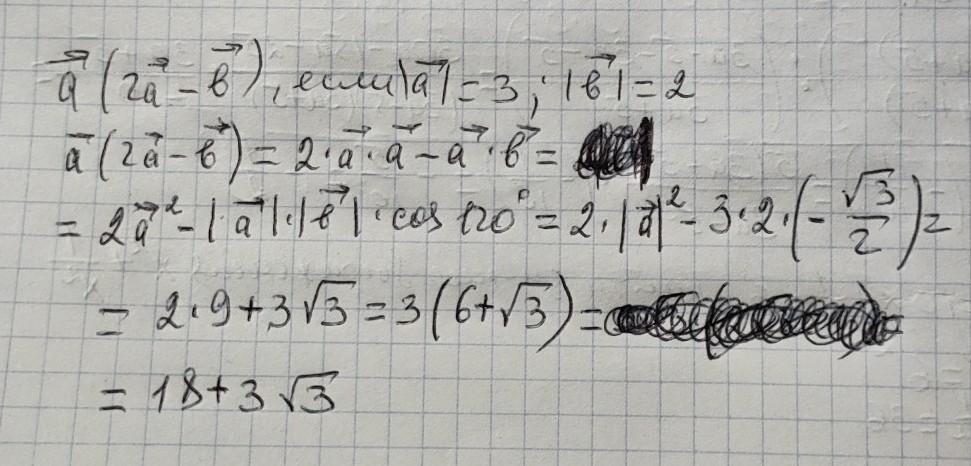 a⃗ (2a⃗ − b⃗), если |a⃗| = 3; |b⃗| = 2
a⃗ (2a⃗ − b⃗) = 2·a⃗·a⃗ − a⃗·b⃗ =
= 2a⃗² − |a⃗|·|b⃗|·cos 120° = 2·|a⃗|² − 3·2·(−√3/2) =
= 2·9 + 3√3 = 3(6+√3) =
= 18 + 3√3